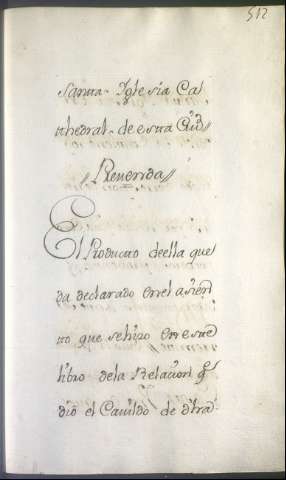 512
Santa Iglesia Ca
thedral de esta Ciud
// Renta //
El Producto deella que
da declarado en el asien
to que sehizo en este
libro dela Relacion q̃
dió el Cavildo de dhã